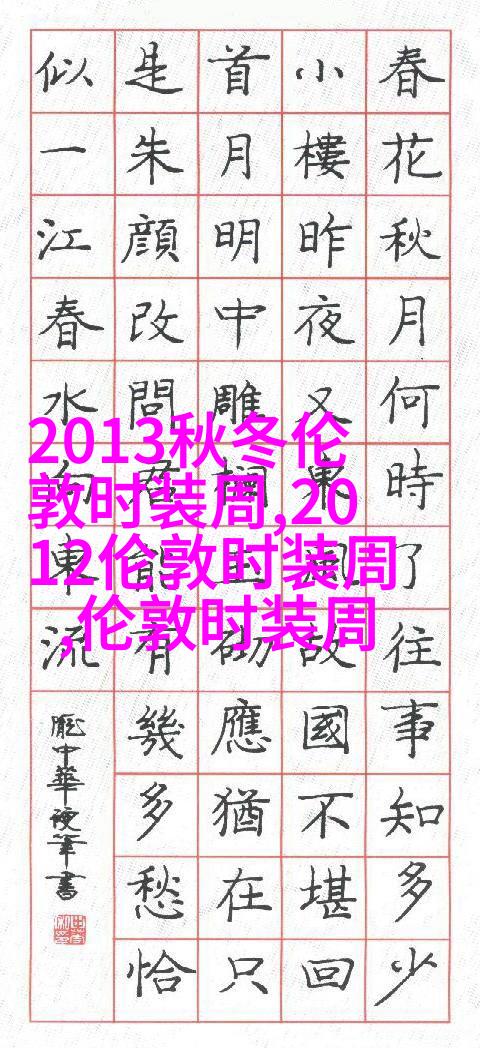 春花秋月何時了往事知多少
小樓昨夜又東風故國不堪回
首月明中雕欄玉砌應猶在只
是朱顔改問君能有幾多愁恰
似一江春水向東流
龐中華硬筆書
2013秋冬伦
敦时装周,20
12伦敦时装周
,伦敦时装周